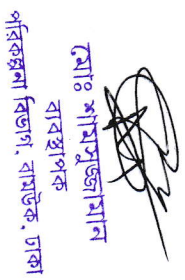 মোঃ শামসুজ্জামান
ব্যবস্থাপক
পরিকল্পনা বিভাগ, বামউক, ঢাকা